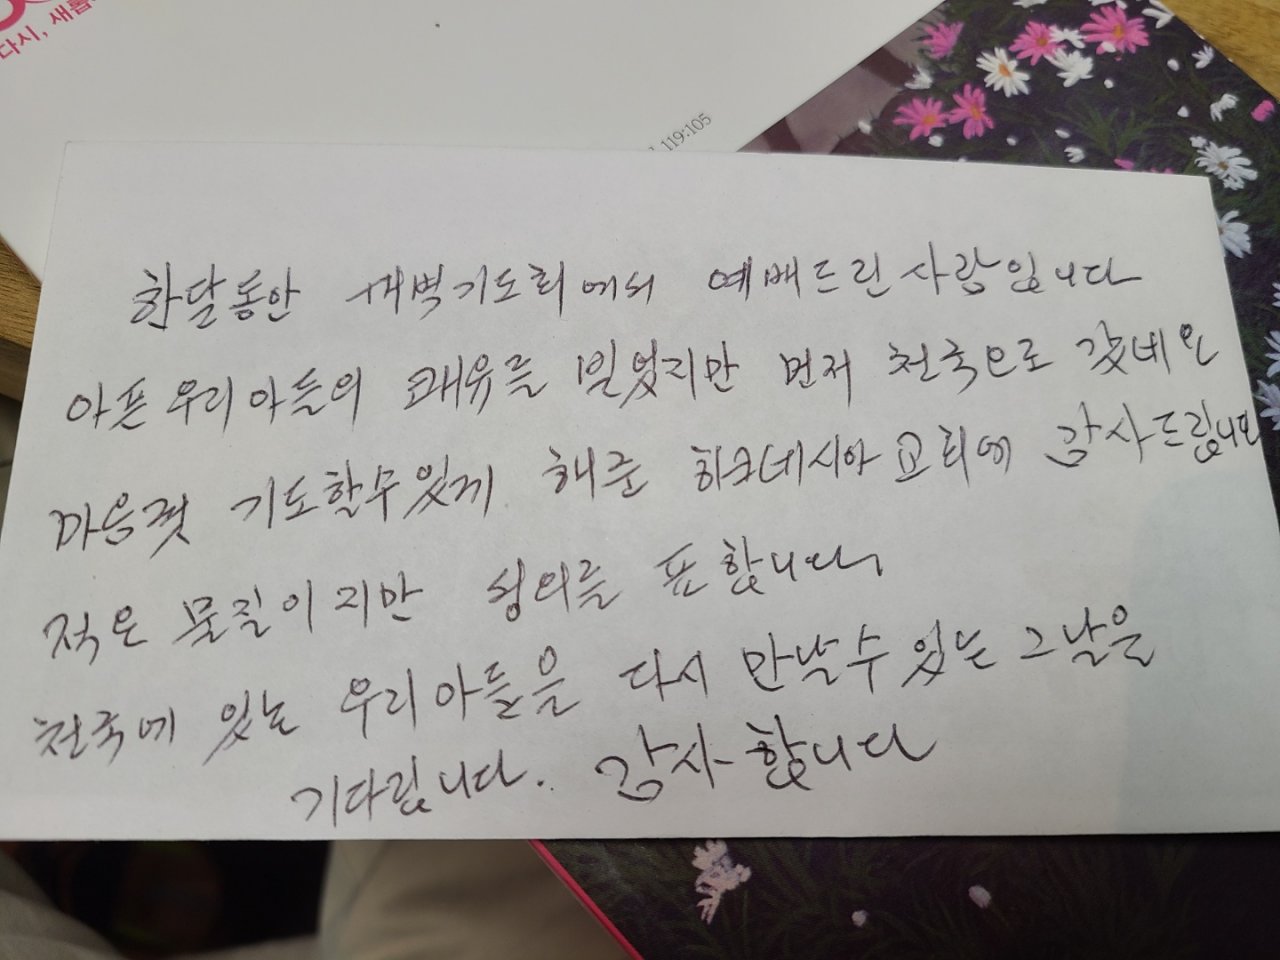 다시, 새롭
119:105
한달동안 새벽기도회에서 예배드린 사람입니다
아픈 우리아들의 쾌유를 빌었지만 먼저 천국으로 갔네요
마음껏 기도할수있게 해준 하크네시아 교회에 감사드립니다
적은 물질이지만 성의를 표합니다.
천국에 있는 우리아들을 다시 만날수있는 그날을
기다립니다. 감사합니다